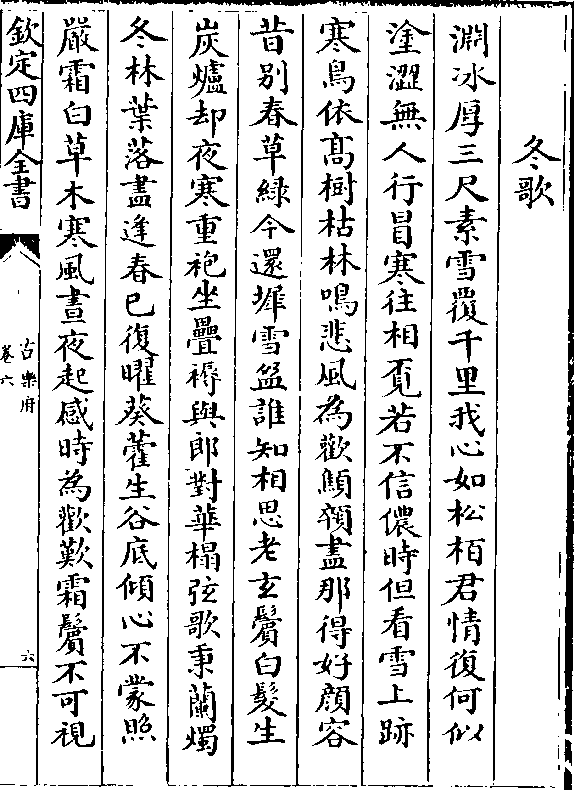 冬歌
淵冰厚三尺素雪覆千里我心如松栢君情復何似
塗澀無人行冒寒往相覓若不信儂時但看雪上跡
寒鳥依髙樹枯林鳴悲風為歡顦顇盡那得好顔容
昔别春草綠今還墀雪盈誰知相思老玄鬢白髮生
炭爐却夜寒重袍坐疊褥與郎對華榻弦歌秉蘭燭
冬林葉落盡逢春已復曜葵藿生谷底傾心不蒙照
嚴霜白草木寒風晝夜起感時為歡歎霜鬢不可視
欽定四庫全書
古樂府
卷六
六